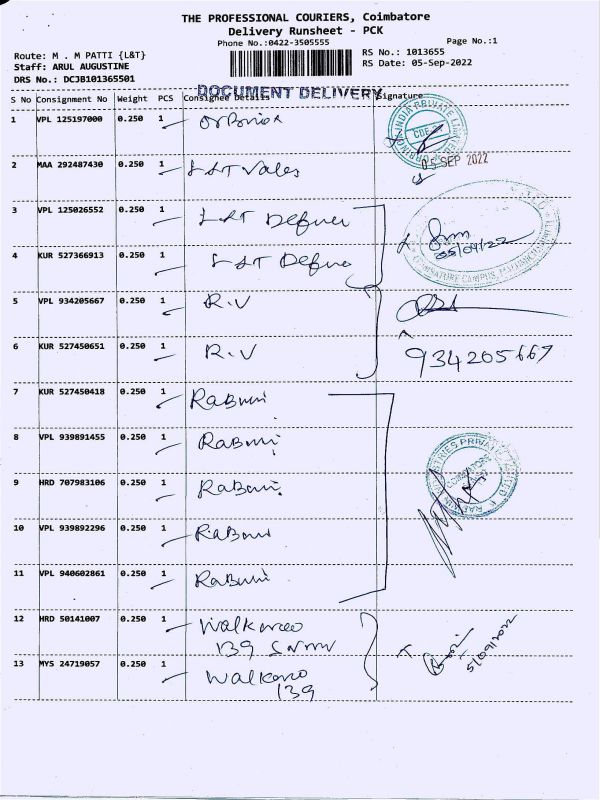 THE PROFESSIONAL COURIERS, Coimbatore
Delivery Runsheet - PCK
Phone No.:0422-3505555
Page No.:1
Route: M . M PATTI {L&T}
RS No.: 1013655
Staff: ARUL AUGUSTINE
RS Date: 05-Sep-2022
DRS No.: DCJB101365501
DOCUMENT DELIVERY
S No Consignment No Weight PCS Consignee Details Signature
1 VPL 125197000 0.250 1
05 SEP 2022
2 MAA 292487430 0.250 1 L&T Vales
3 VPL 125026552 0.250 1 L&T
05/09/22
4 KUR 527366913 0.250 1 L&T
5 VPL 934205667 0.250 1 R.V
6 KUR 527450651 0.250 1 R.V
934205667
7 KUR 527450418 0.250 1 Rabuni
8 VPL 939891455 0.250 1 Rabuni
9 HRD 707983106 0.250 1 Rabuni
10 VPL 939892296 0.250 1 Rabuni
11 VPL 940602861 0.250 1 Rabuni
12 HRD 50141007 0.250 1 Walkaroo
139
5/09/2022
13 MYS 24719057 0.250 1 Walkaroo
139